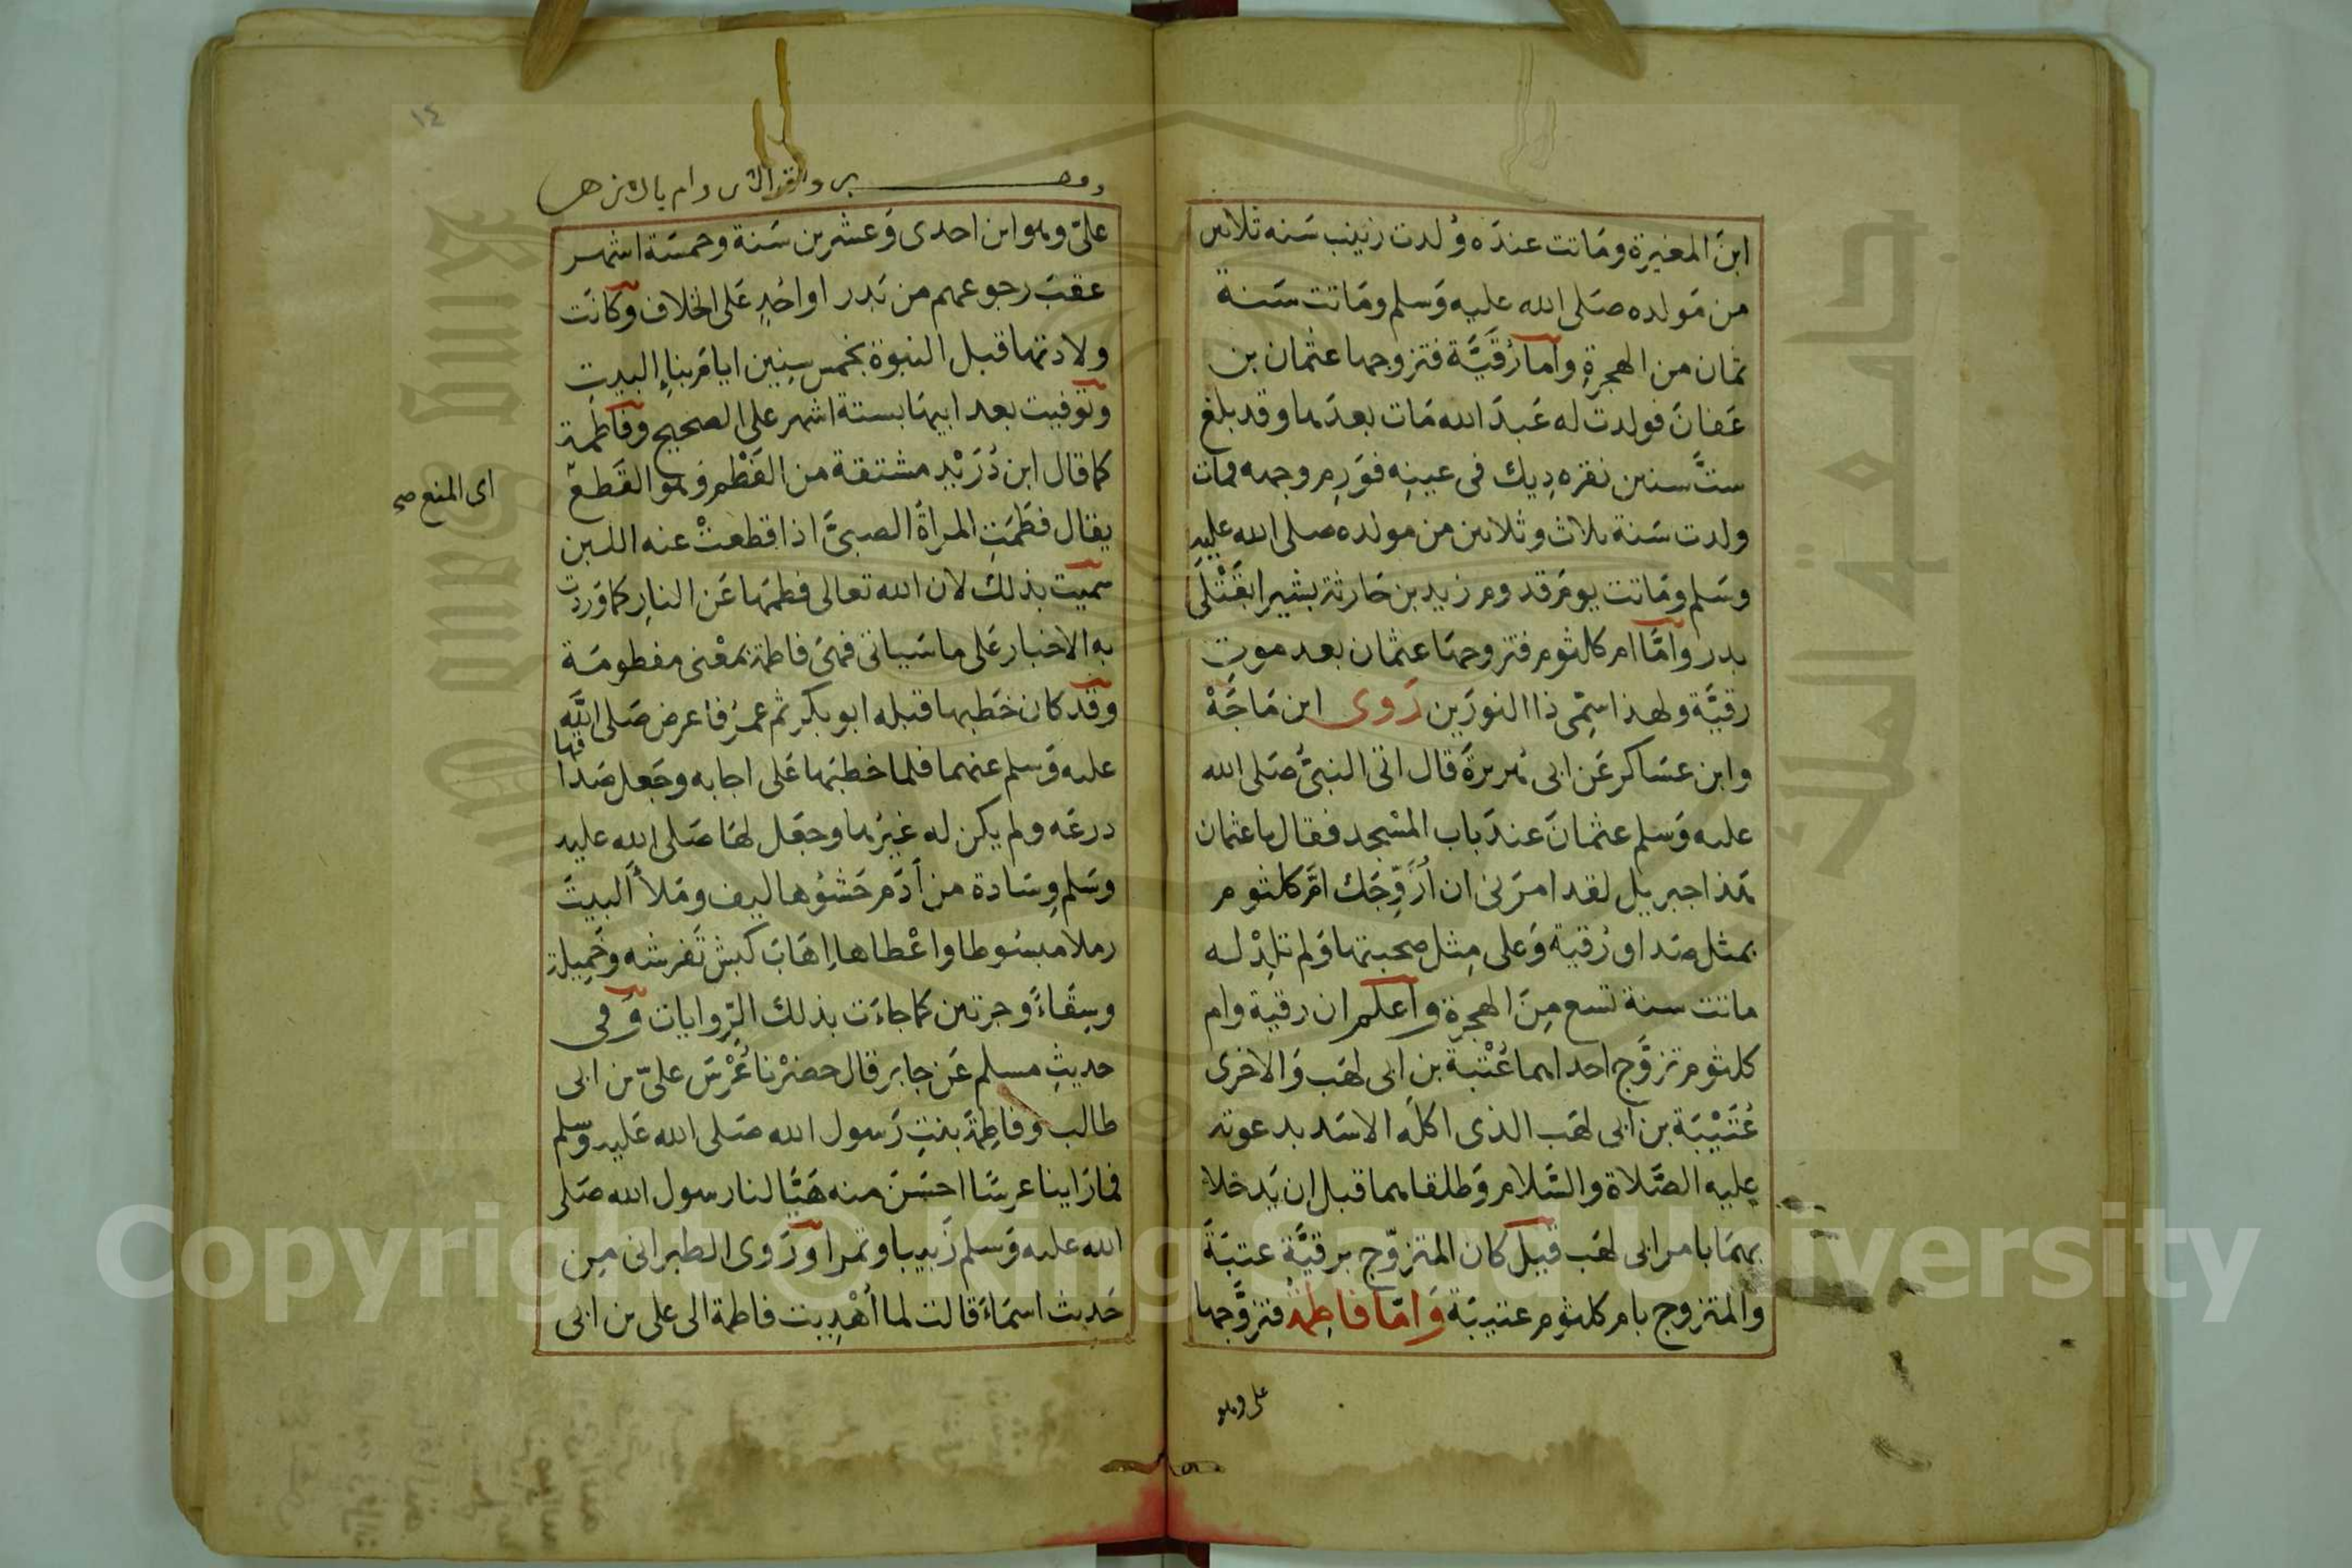 ابنَ المغيرة ومَاتت عندَه وُلدت زينب سَنه ثلاثين
من مَولده صَلى الله عليه وَسلم ومَاتت سَنة
ثمان من الهجرةِ وأما رُقيَّة فتزوجها عثمان بن
عَفانَ فولدت له عَبدَ الله مَات بعدَها وقد بلغ
ستَّ سنين نقره دِيك فى عينِه فوَرِم وجهه فمات
ولدت سَنة ثلاث وثلاثين من مولده صلى الله عليهِ
وسَلم ومَاتت يومَ قدوم زيد بن حَارثة بشيرا بقَتْلَى
بدر وامَّا ام كلثوم فتزوجهَا عثمان بعد موتِ
رقيَّة ولهذا سمِّى ذا النورَين رَوى ابن مَاجَهْ
وابن عسَاكر عَن ابى هُريرةَ قال اتى النبىُّ صَلى الله
عليه وَسلم عثمانَ عندَ باب المسْجد فقال يا عثمان
هَذا جبريل لقد امرَنى ان اُزَوِّجَك امَّ كلثوم
بمثل صَداق رُقية وَعلى مِثل صحبتها وَلم تلِدْ له
ماتت سنة تسع مِنَ الهجرة واعلم ان رقية وام
كلثوم تزوَّج احداهما عُتْبةُ بن ابى لهَب وَالاخرى
عُتَيْبَة بن ابى لهَب الذى اكلَه الاسَد بدعوته
عليه الصَّلاة والسَّلام وَطلقاهما قبل ان يَدخلا
بهمَا بامر ابى لهَب قيل كان المتزوّج برقيَّة عتبَةَ
والمتزوج بام كلثوم عتيبَة وَامّا فاطِمَةُ فتزوَّجها
على وهو
١٤
علىّ وهو ابن احدى وَعشرين سَنة وخمسَة اشهر
عقبَ رجوعهم من بَدر او احُدٍ عَلى الخلاف وكانَت
ولادتها قبل النبوة بخمس سِنِين ايامَ بناءِ البيتِ
وتوفيت بعد ابيهَا بستة اشهر على الصحيح وفاطمة
كما قال ابن دُرَيْدٍ مشتقة من الفَطْم وَهُو القَطعُ
اى المنع صح
يقال فطَمَتِ المرأةُ الصبىَّ اذا قطعتْ عنه اللبن
سميت بذلك لان الله تعالى فطمَها عَن النارِ كما وَردت
به الاخبار عَلى ما سَياتى فهىَ فاطمة بمَعْنى مفطومَة
وقد كان خَطبها قبله ابو بكر ثم عمرُ فاعرض صَلى اللَّه
عليه وَسلم عنهما فلما خطبَها عَلى اجابه وجَعل صَداقها
درعَه ولم يكن له غيرُها وجعَل لهَا صَلى الله عليه
وسَلم وِسَادة من أدَم حَشوُها ليف ومَلأ البيتَ
رملا مبسُوطا واعْطاها اِهَابَ كبش تَفرشه وخَمِيلة
وسِقَاءً وَجرتين كما جاءَت بذلك الرِّوايات وَفى
حديثِ مسلم عَن جابر قال حضرْنا عُرْسَ علىّ بن ابى
طالب وَفاطِمَة بنتِ رَسول الله صَلى الله عَليه وسلم
فما رَاينا عرسًا احسَنَ منه هَيَّا لنا رسول الله صَلى
الله عليه وَسلم زَبيبا وتمرا ورَوى الطبرانى مِن
حَديث اسمَاءَ قالت لما اُهْدِيت فاطمة الى على بن ابى
Copyright © King Saud University